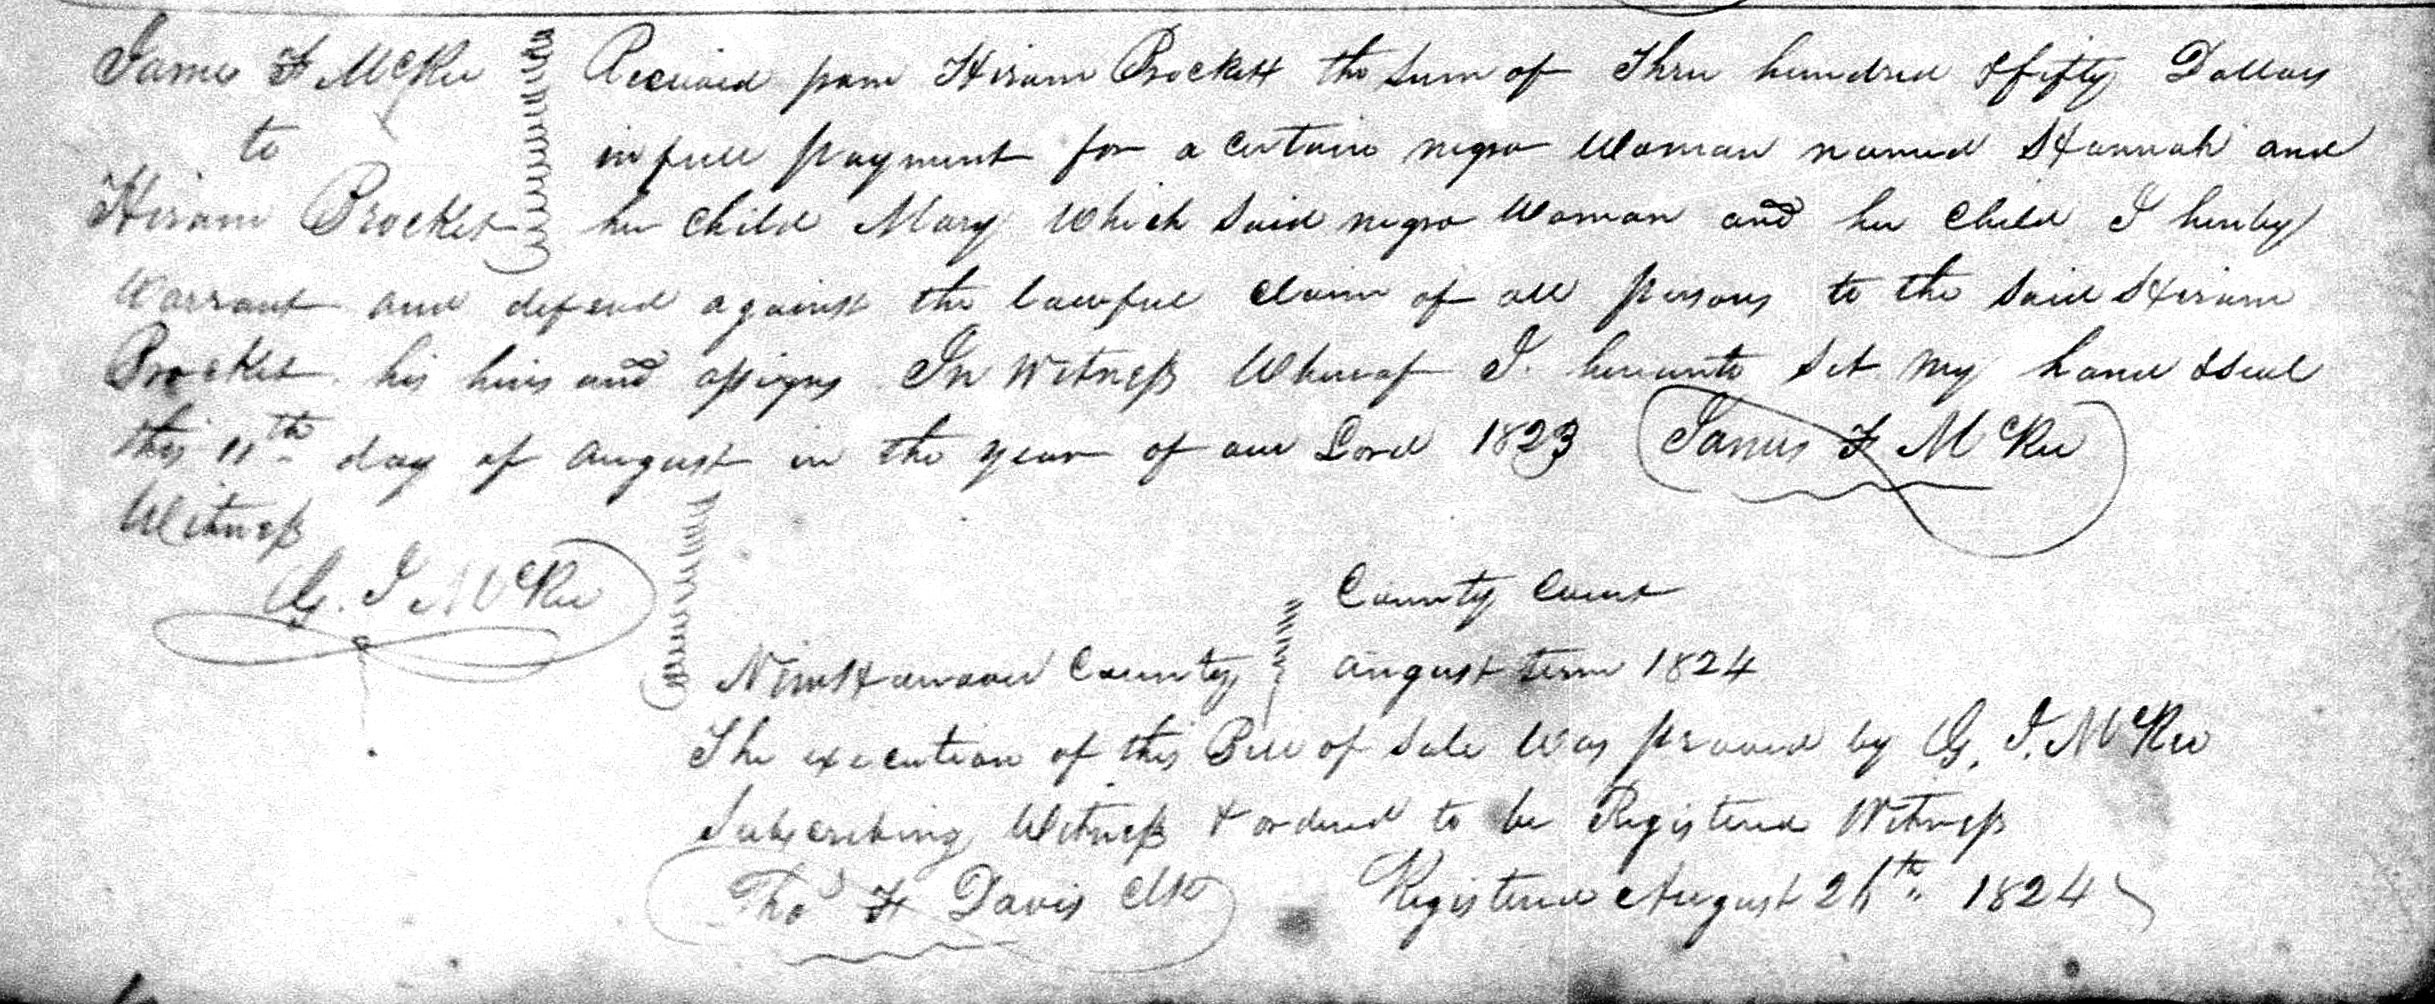 James F McRee
to
Hiram Brocket
Received from Hiram Brockett the Sum of Three hundred & fifty Dollars
in full payment for a certain negro Woman named Hannah and
her Child Mary Which Said negro Woman and her Child I hereby
Warrant and defend against the lawful claim of all persons to the Said Hiram
Brocket his heirs and assigns In Witness Whereof I hereunto Set my hand & Seal
this 11th day of August in the year of our Lord 1823 James F McRee
Witness
G. J McRee
County Court
New Hanover County August term 1824
The execution of this Bill of Sale Was proved by G. J. McRee
Subscribing Witness & ordered to be Registered Witness
Thos F Davis Clk Registered August 26th 1824